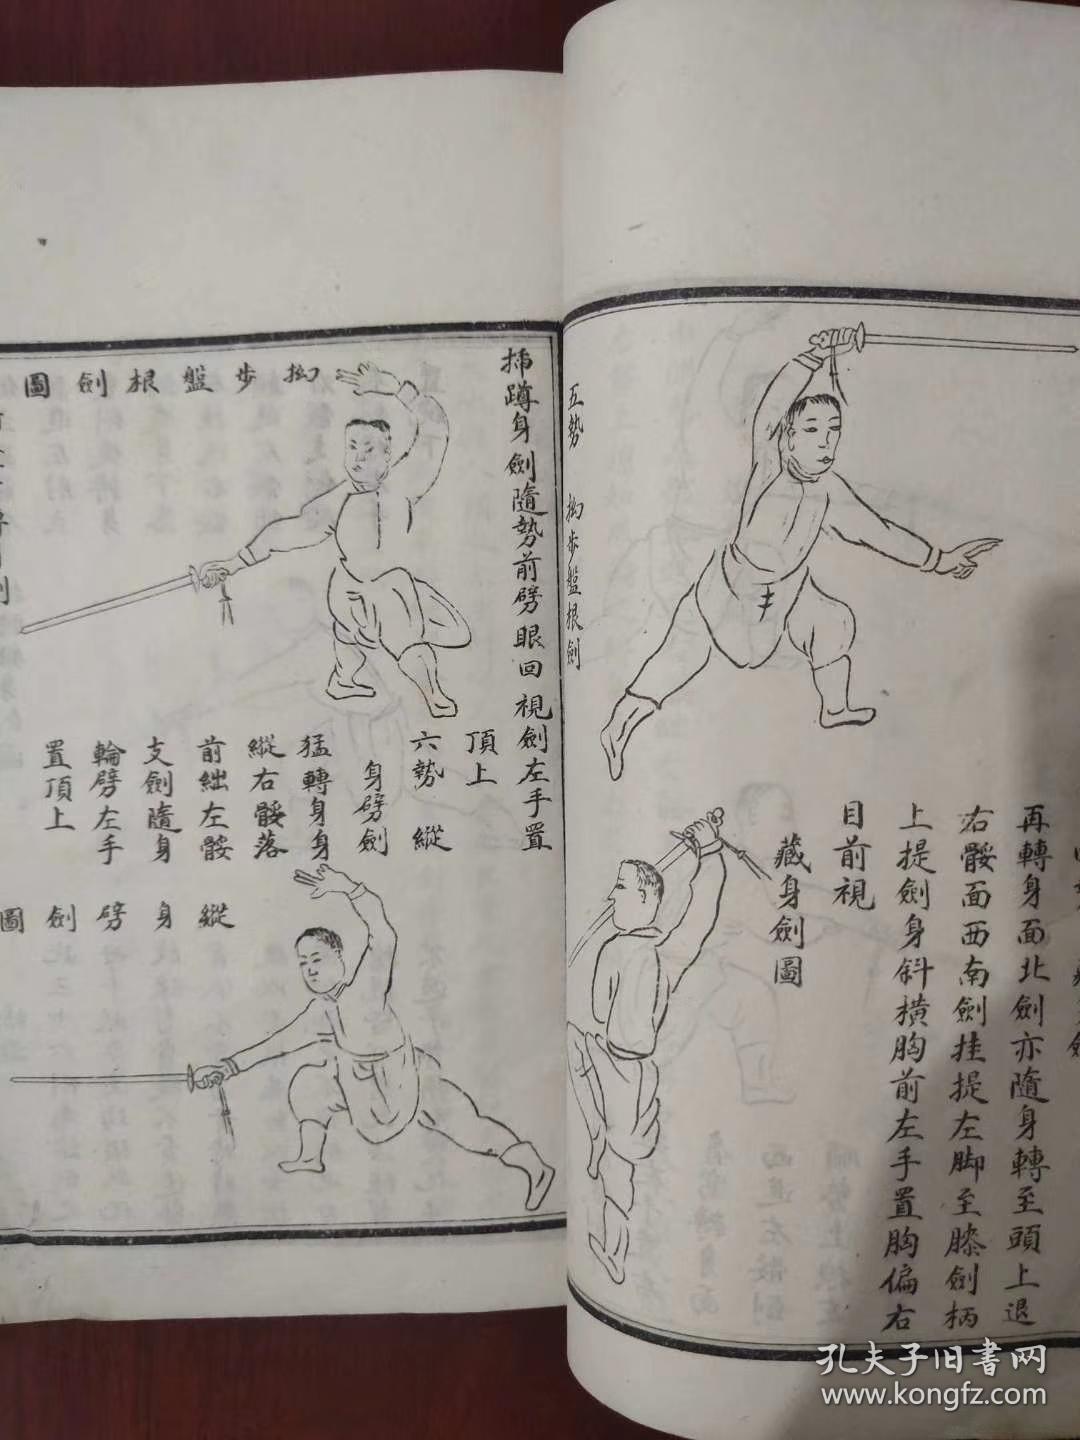 再轉身面北劍亦隨身轉至頭上退
右骽面西南劍挂提左脚至膝劍柄
上提劍身斜橫胸前左手置胸偏右
目前視
藏身劍圖
五勢 拗步盤根劍
揷蹲身劍隨勢前劈眼回視劍左手置
頂上
拗步盤根劍圖
六勢 縱
身劈劍
猛轉身身
縱右骽落
前絀左骽
支劍隨身
輪劈左手
置頂上
縱身劈劍圖
孔夫子旧書网
www.kongfz.com